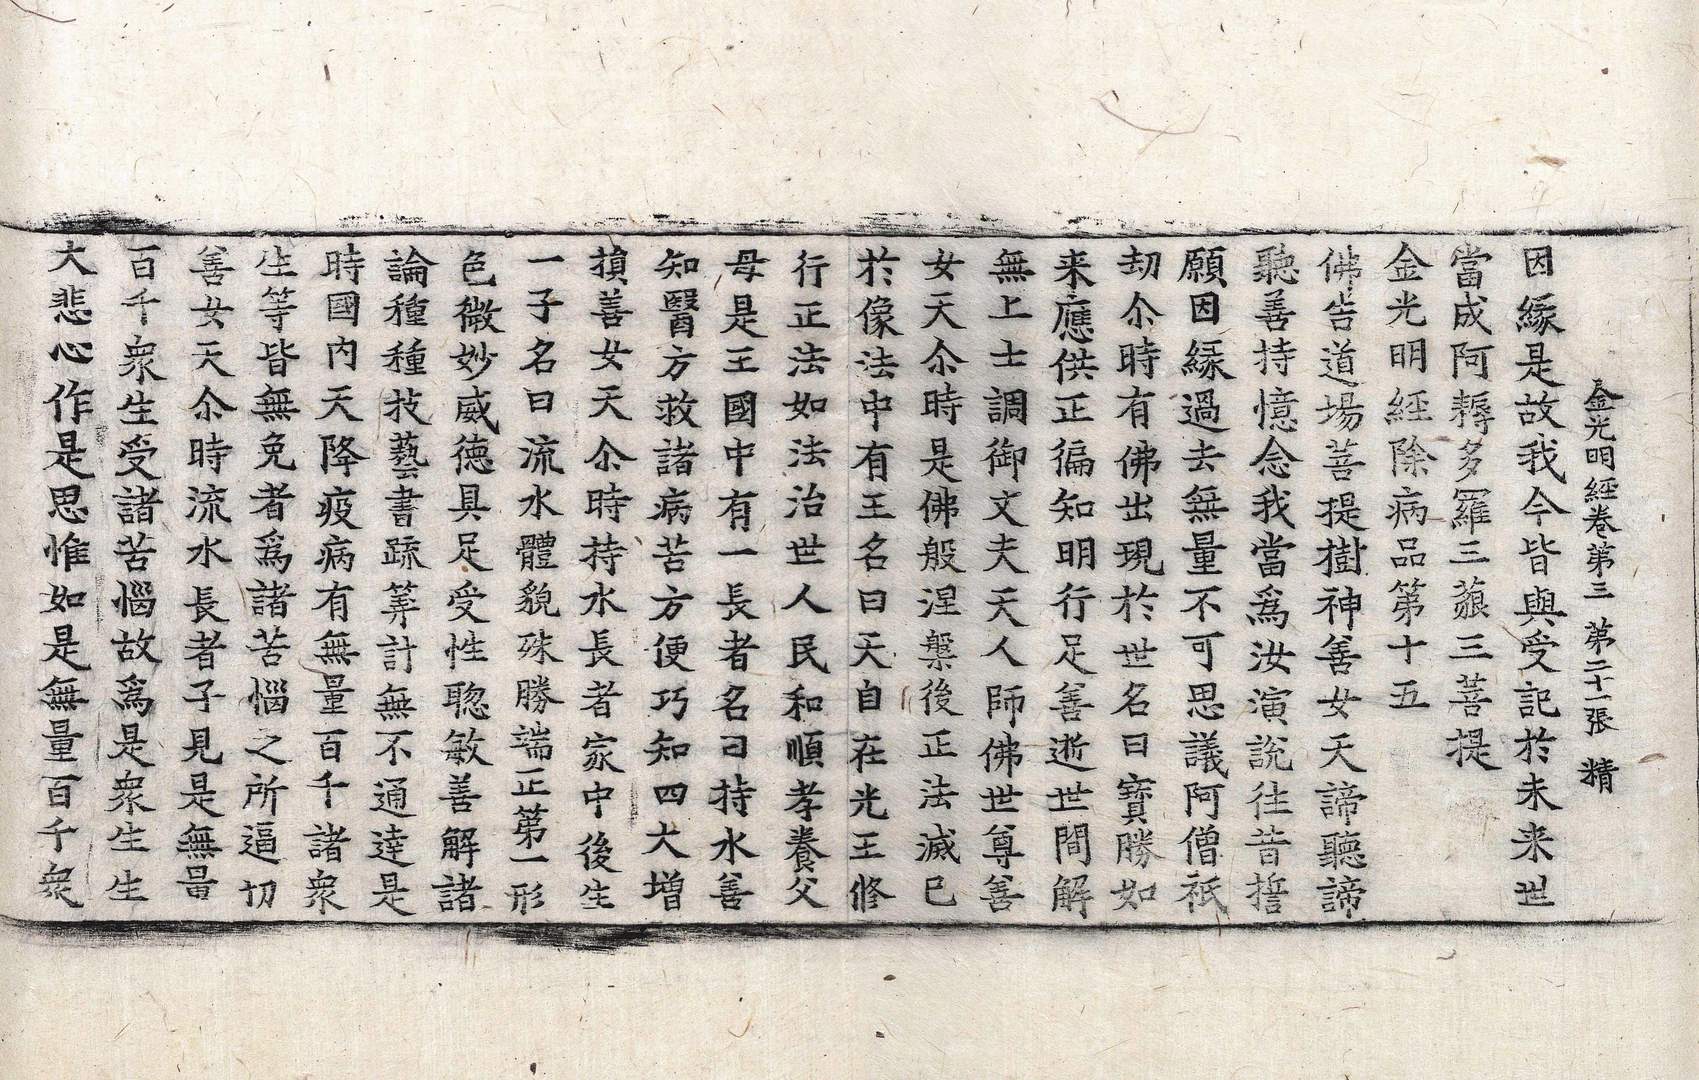 金光明經卷第三 第二十一張 精
因縁是故我今皆與受記於未来世
當成阿耨多羅三藐三菩提
金光明經除病品第十五
佛告道場菩提樹神善女天諦聽諦
聽善持憶念我當爲汝演說往昔誓
願因縁過去無量不可思議阿僧祇
劫尒時有佛出現於世名曰寶勝如
来應供正徧知明行足善逝世間解
無上士調御丈夫天人師佛世尊善
女天尒時是佛般涅槃後正法滅已
於像法中有王名曰天自在光王修
行正法如法治世人民和順孝養父
母是王國中有一長者名曰持水善
知醫方救諸病苦方便巧知四大增
損善女天尒時持水長者家中後生
一子名曰流水體貌殊勝端正第一形
色微妙威德具足受性聦敏善解諸
論種種技藝書䟽筭計無不通達是
時國内天降疫病有無量百千諸衆
生等皆無免者爲諸苦惱之所逼切
善女天尒時流水長者子見是無量
百千衆生受諸苦惱故爲是衆生生
大悲心作是思惟如是無量百千衆